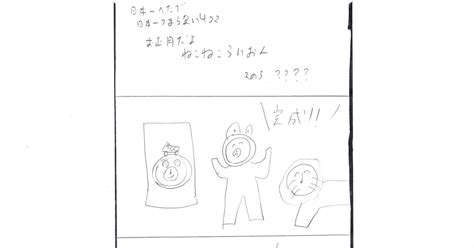 日本一へたで
日本一つまらない4コマ
お正月だよ
ねこねこらいおん
その3 ????
完成!!